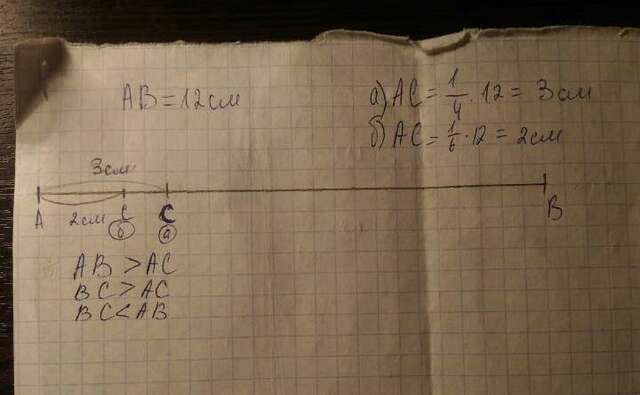 AB = 12см
а) AC = 1/4 · 12 = 3см
б) AC = 1/6 · 12 = 2см
3см
A 2см C C B
б а
AB > AC
BC > AC
BC < AB